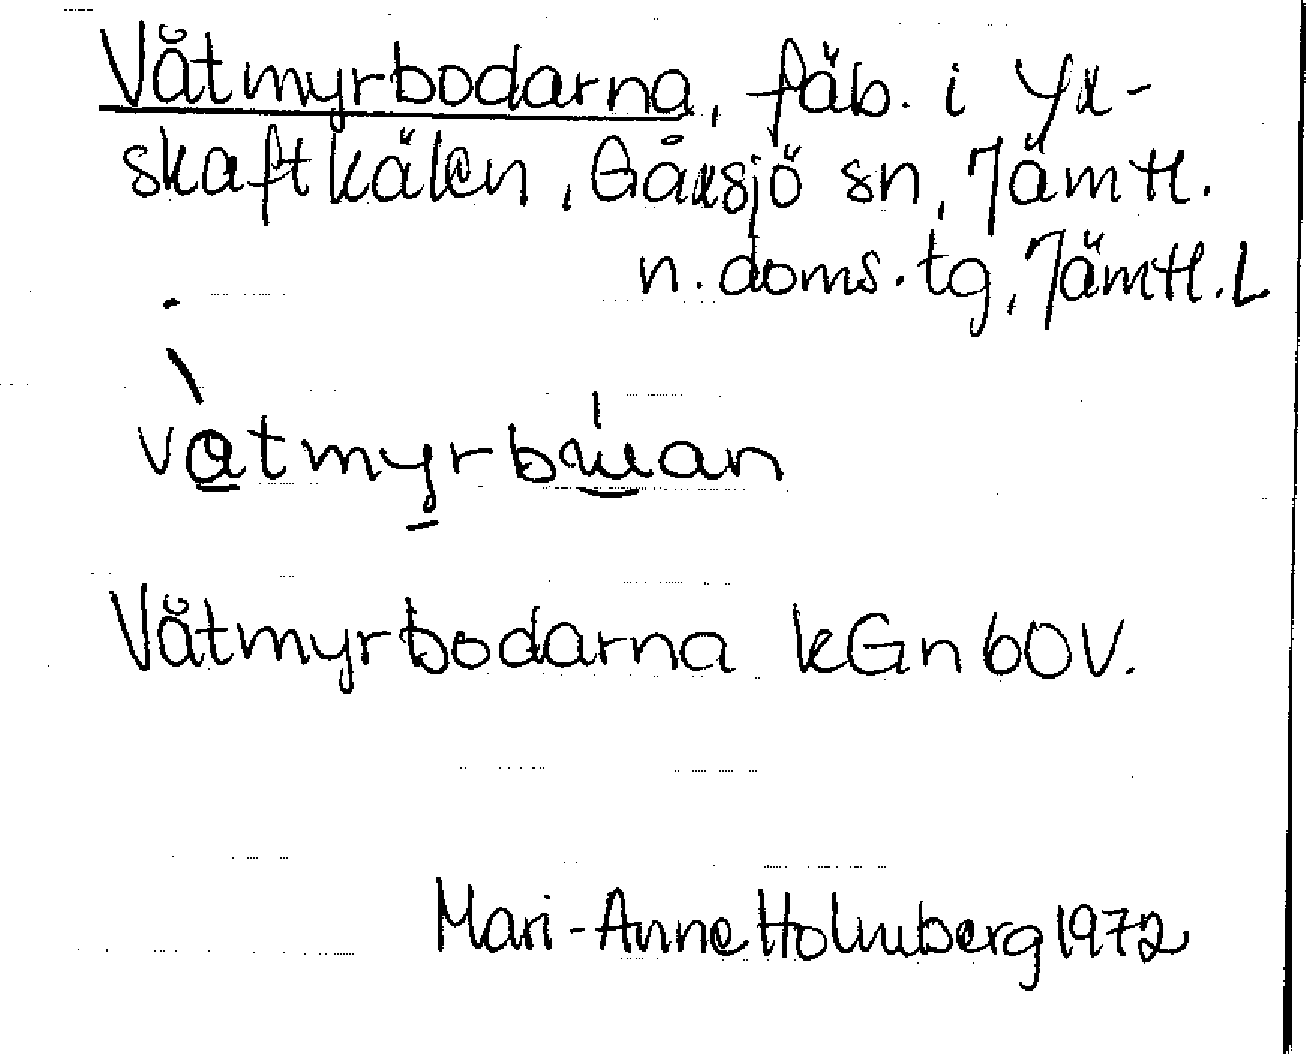 Våtmyrbodarna, fäb. i Yx-
skaftkälen, Gåxsjö sn, Jämtl.
n. doms. tg, Jämtl. L
Våtmyrbodarna kGn 60 V.
Mari-Anne Holmberg 1972